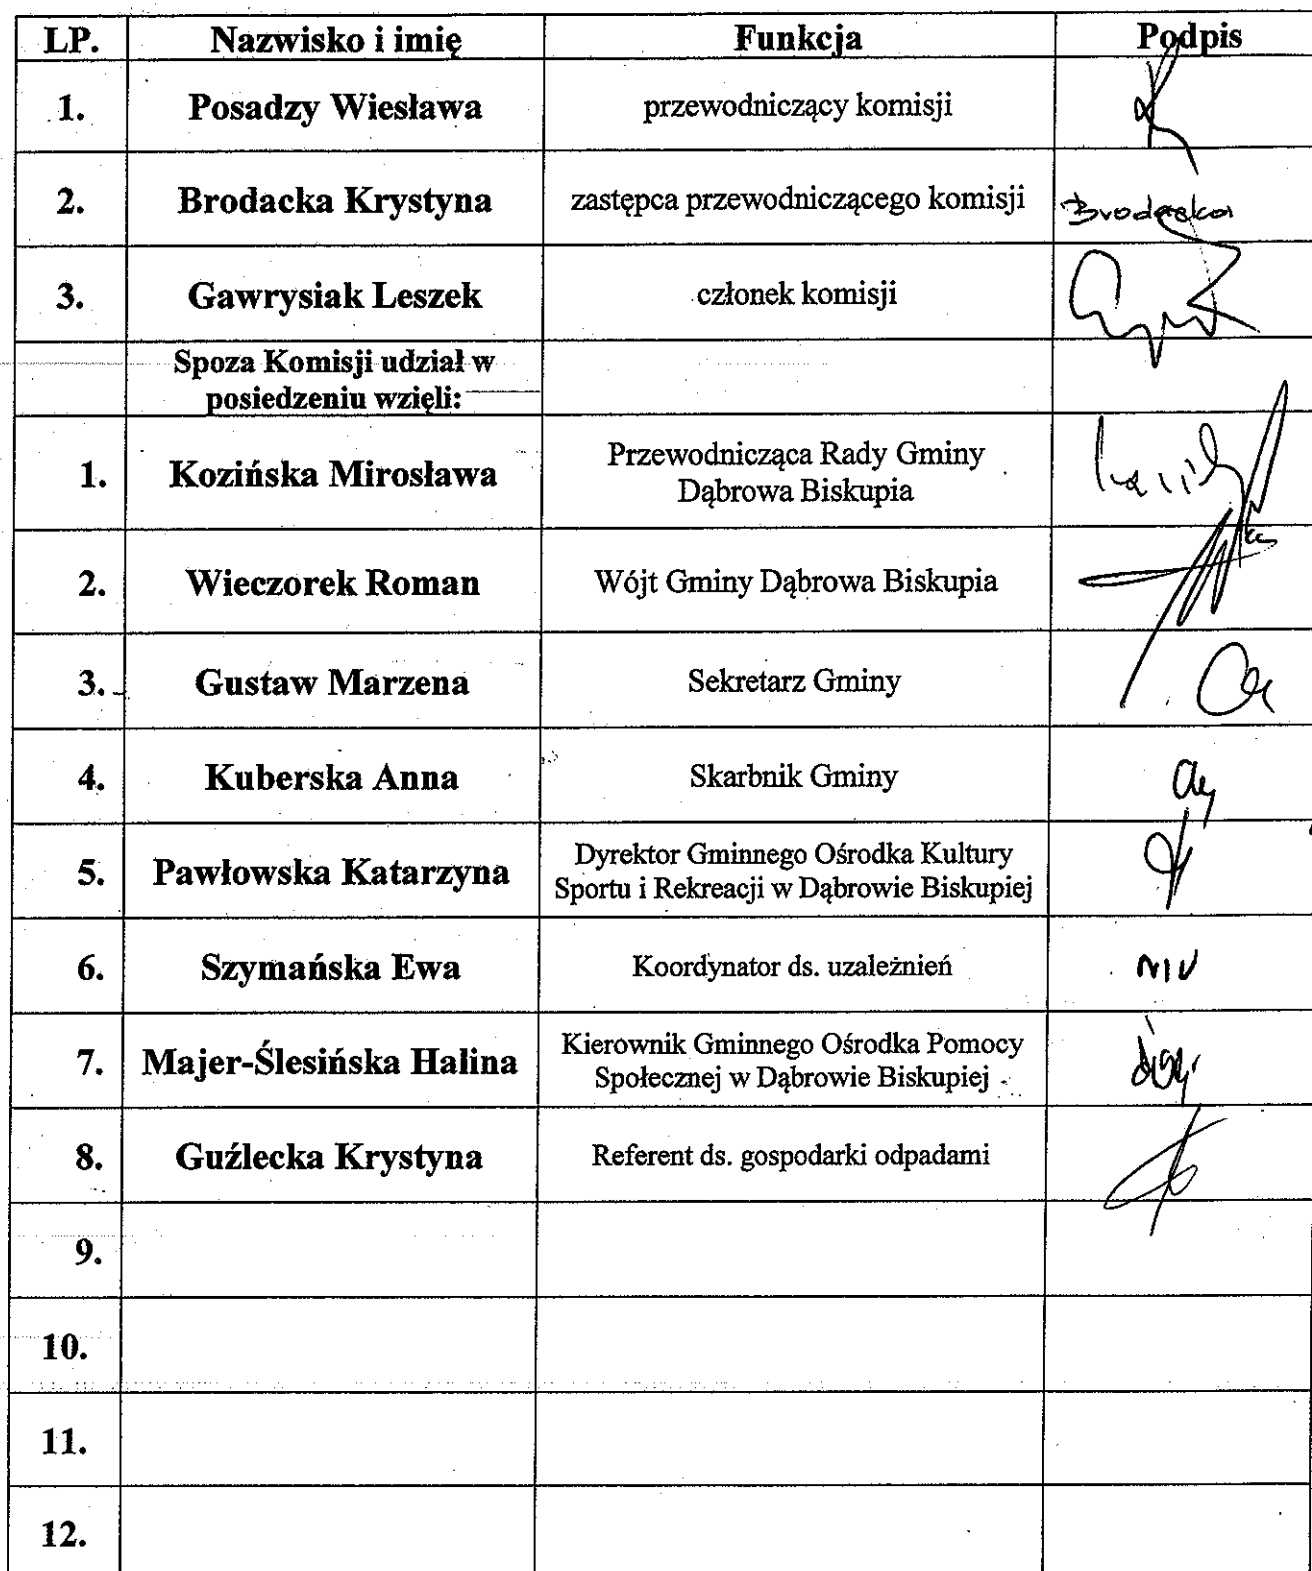 LP. Nazwisko i imię Funkcja Podpis
1. Posadzy Wiesława przewodniczący komisji
2. Brodacka Krystyna zastępca przewodniczącego komisji Brodacka
3. Gawrysiak Leszek członek komisji
Spoza Komisji udział w
posiedzeniu wzięli:
1. Kozińska Mirosława Przewodnicząca Rady Gminy
Dąbrowa Biskupia
2. Wieczorek Roman Wójt Gminy Dąbrowa Biskupia
3. Gustaw Marzena Sekretarz Gminy
4. Kuberska Anna Skarbnik Gminy
5. Pawłowska Katarzyna Dyrektor Gminnego Ośrodka Kultury
Sportu i Rekreacji w Dąbrowie Biskupiej
6. Szymańska Ewa Koordynator ds. uzależnień
7. Majer-Ślesińska Halina Kierownik Gminnego Ośrodka Pomocy
Społecznej w Dąbrowie Biskupiej
8. Guźlecka Krystyna Referent ds. gospodarki odpadami
9.
10.
11.
12.